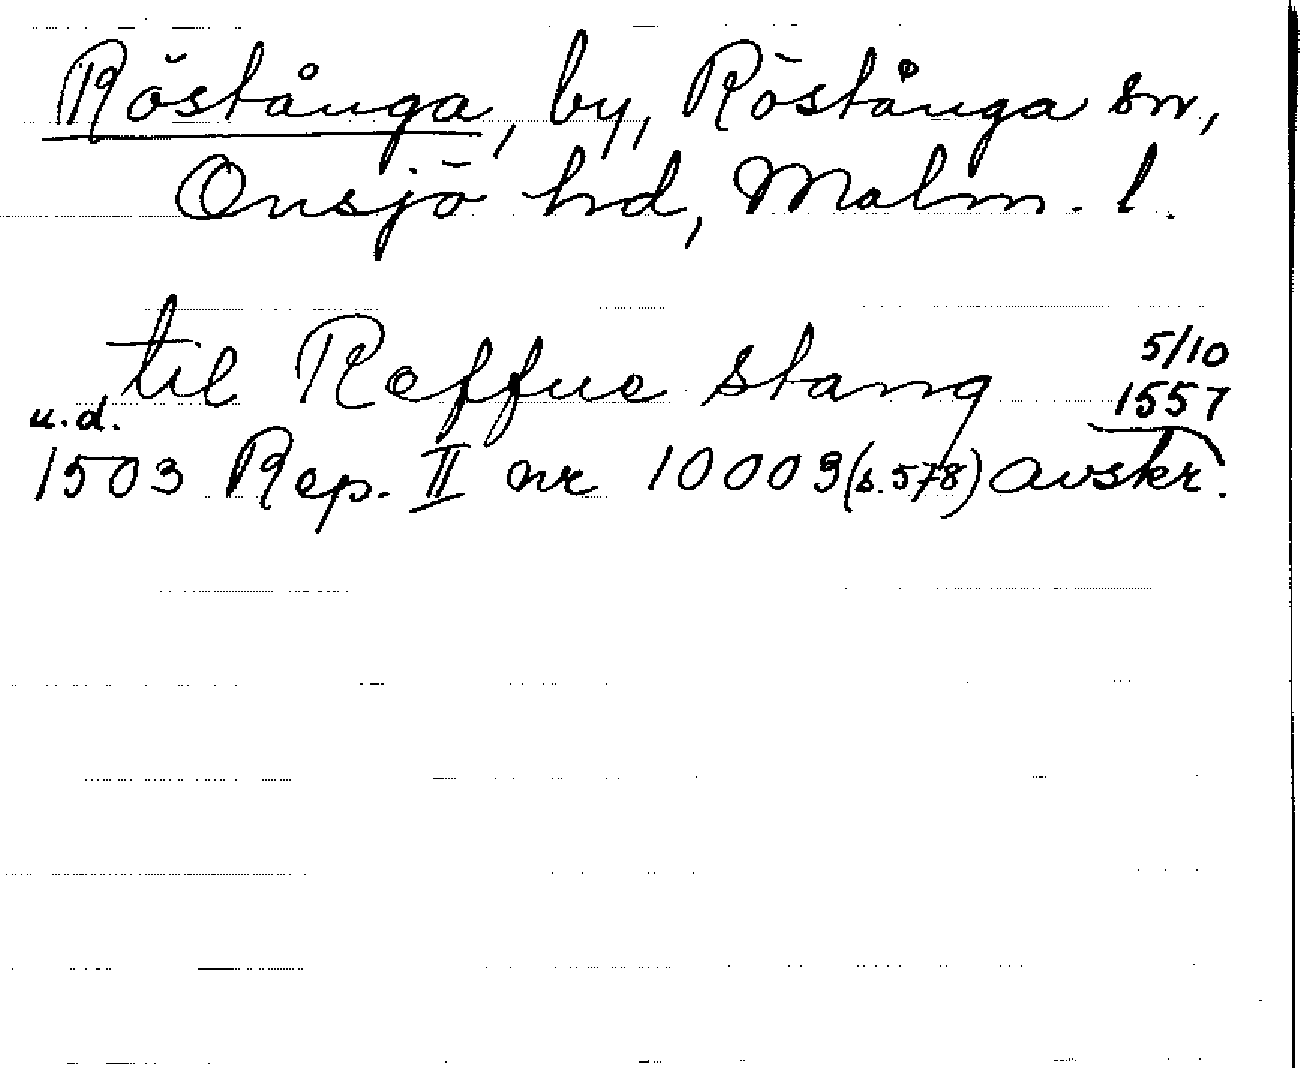 Röstånga, by, Röstånga sn,
Onsjö hd, Malm. l.
til Reffue stang 5/10
u.d. 1557
1503 Rep. II nr 10003 (s. 578) avskr.